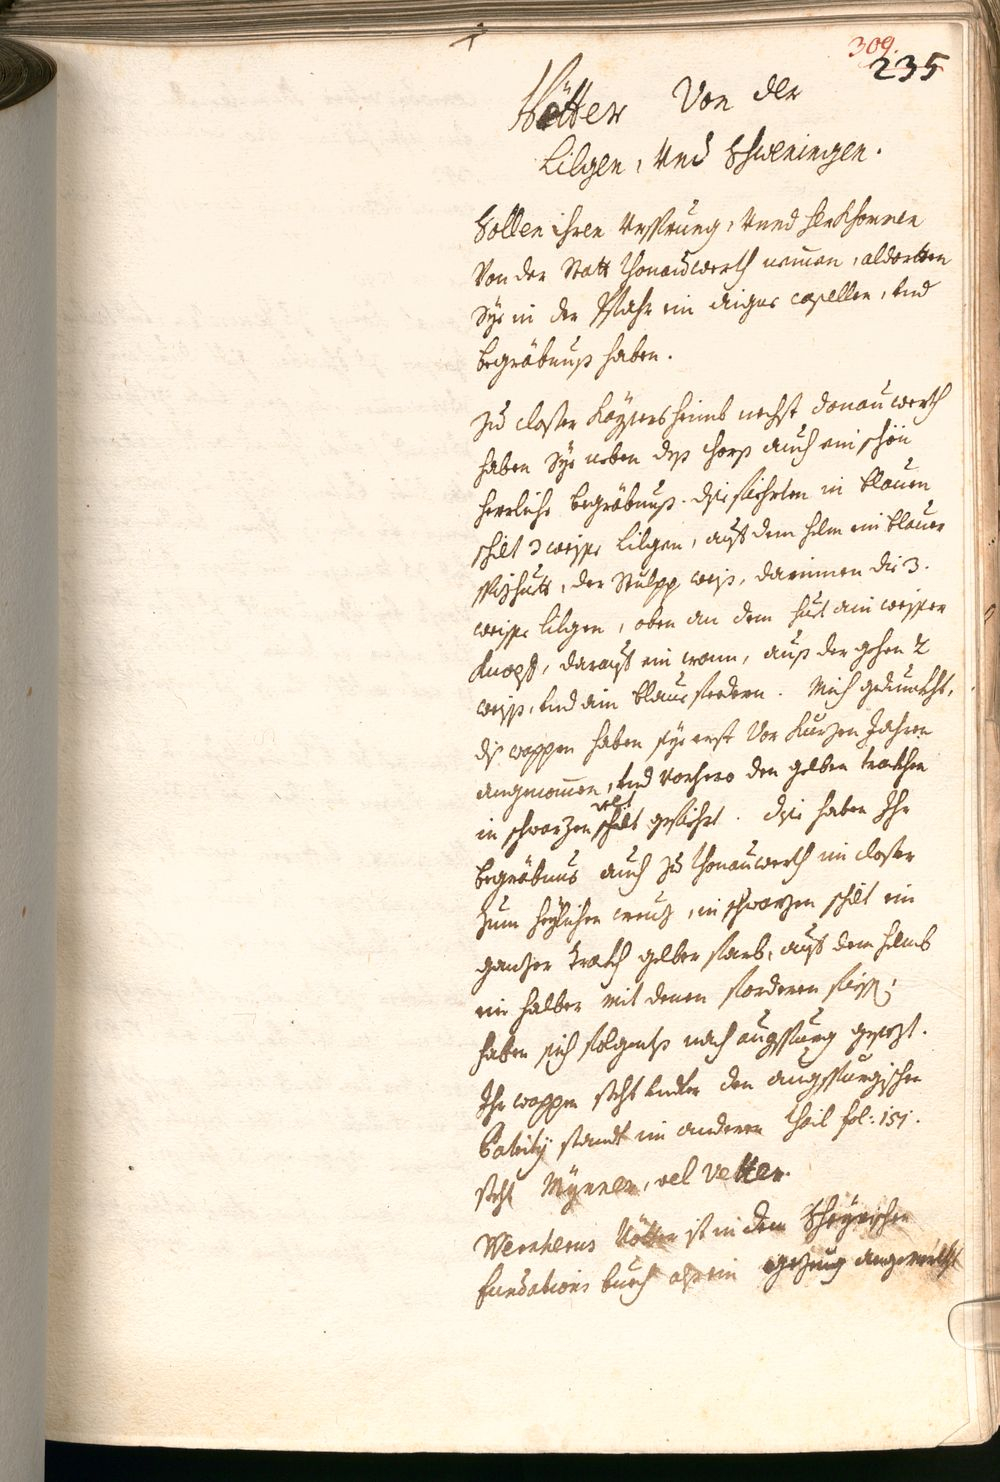 309.
235
Vötter Von der
Lilgen, Und Schweningen.
Sollen ihren Ursprung, Unnd herkhomen
Von der Statt Thonauwerth nemen, aldorten
Sye in der Pfahr ein aigne capellen, Und
begräbnuß haben.
Zu closter Kayßersheimb nechst Donauwerth
haben Sye neben deß Chorß auch ein schön
herrliche begräbnuß. Die fiehrten in blauen
schilt 3 weisse Lilgen, auf dem helm ein blauer
Spizhuett, der Stulpp weiß, darinnen die 3.
weisse lilgen, oben an dem huet ain weissen
Knopff, darauff ein cron, auß der gehen 2
weiß, Und ain blaue federn. Mich gedunckht,
diß wappen haben sye erst Vor Kurzen Jahren
angenommen, Und Vorhero den gelben trackhen
in schwarzen schilt gefiehrt. Die haben Ihr
begräbnus auch zu Thonauwerth im closter
Zum heyligen creuz, in schwarzen schilt ein
ganzer trackh gelber farb, auff dem helmb
ein halber mit denen forderen fiessen,
haben sich folgents nach Augspurg gesezt.
Ihr wappen steht Under den augspurgischen
Patritij standt im anderen theil fol: 151.
steht Mynner, vel Vetter.
Wernherus Vötter ist in dem Scheyrischen
fundations buech alß ein gezeug angemerckht